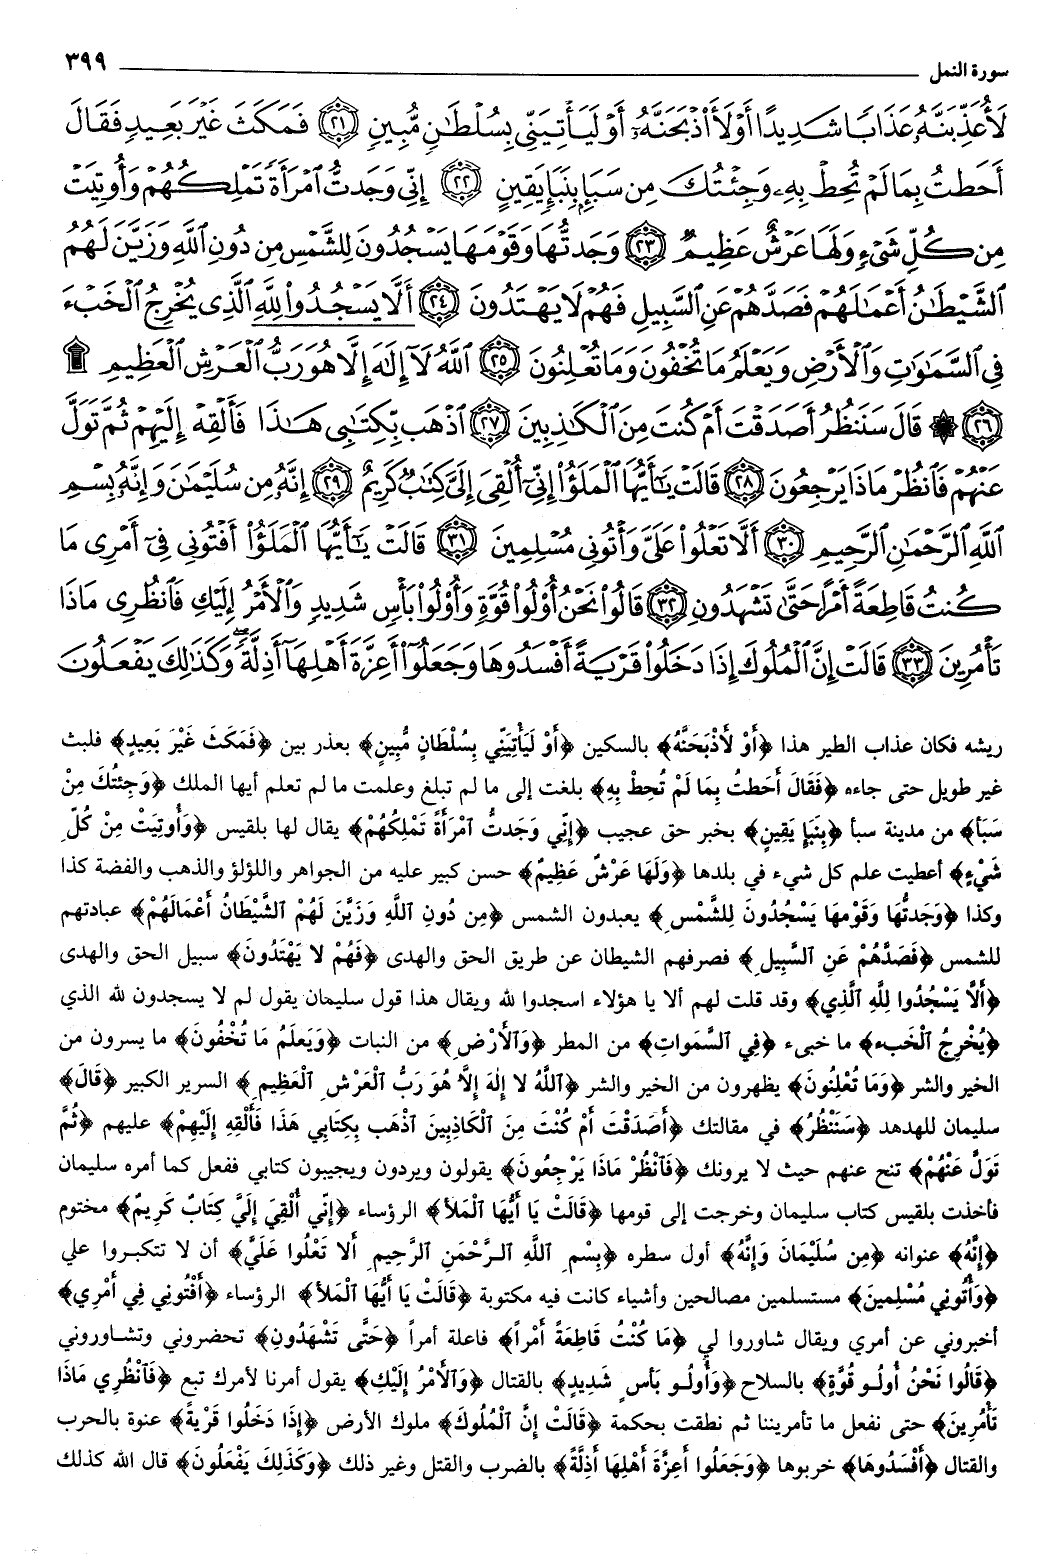 سورة النمل ٣٩٩
لَأُعَذِّبَنَّهُۥ عَذَابًا شَدِيدًا أَوْ لَأَاْذْبَحَنَّهُۥٓ أَوْ لَيَأْتِيَنِّى بِسُلْطَٰنٍ مُّبِينٍ ﴿٢١﴾ فَمَكَثَ غَيْرَ بَعِيدٍ فَقَالَ
أَحَطتُ بِمَا لَمْ تُحِطْ بِهِۦ وَجِئْتُكَ مِن سَبَإٍۭ بِنَبَإٍ يَقِينٍ ﴿٢٢﴾ إِنِّى وَجَدتُّ ٱمْرَأَةً تَمْلِكُهُمْ وَأُوتِيَتْ
مِن كُلِّ شَىْءٍ وَلَهَا عَرْشٌ عَظِيمٌ ﴿٢٣﴾ وَجَدتُّهَا وَقَوْمَهَا يَسْجُدُونَ لِلشَّمْسِ مِن دُونِ ٱللَّهِ وَزَيَّنَ لَهُمُ
ٱلشَّيْطَٰنُ أَعْمَٰلَهُمْ فَصَدَّهُمْ عَنِ ٱلسَّبِيلِ فَهُمْ لَا يَهْتَدُونَ ﴿٢٤﴾ أَلَّا يَسْجُدُواْ لِلَّهِ ٱلَّذِى يُخْرِجُ ٱلْخَبْءَ
فِى ٱلسَّمَٰوَٰتِ وَٱلْأَرْضِ وَيَعْلَمُ مَا تُخْفُونَ وَمَا تُعْلِنُونَ ﴿٢٥﴾ ٱللَّهُ لَآ إِلَٰهَ إِلَّا هُوَ رَبُّ ٱلْعَرْشِ ٱلْعَظِيمِ ۩
﴿٢٦﴾ ۞ قَالَ سَنَنظُرُ أَصَدَقْتَ أَمْ كُنتَ مِنَ ٱلْكَٰذِبِينَ ﴿٢٧﴾ ٱذْهَب بِّكِتَٰبِى هَٰذَا فَأَلْقِهْ إِلَيْهِمْ ثُمَّ تَوَلَّ
عَنْهُمْ فَٱنظُرْ مَاذَا يَرْجِعُونَ ﴿٢٨﴾ قَالَتْ يَٰٓأَيُّهَا ٱلْمَلَؤُاْ إِنِّىٓ أُلْقِىَ إِلَىَّ كِتَٰبٌ كَرِيمٌ ﴿٢٩﴾ إِنَّهُۥ مِن سُلَيْمَٰنَ وَإِنَّهُۥ بِسْمِ
ٱللَّهِ ٱلرَّحْمَٰنِ ٱلرَّحِيمِ ﴿٣٠﴾ أَلَّا تَعْلُواْ عَلَىَّ وَأْتُونِى مُسْلِمِينَ ﴿٣١﴾ قَالَتْ يَٰٓأَيُّهَا ٱلْمَلَؤُاْ أَفْتُونِى فِىٓ أَمْرِى مَا
كُنتُ قَاطِعَةً أَمْرًا حَتَّىٰ تَشْهَدُونِ ﴿٣٢﴾ قَالُواْ نَحْنُ أُوْلُواْ قُوَّةٍ وَأُوْلُواْ بَأْسٍ شَدِيدٍ وَٱلْأَمْرُ إِلَيْكِ فَٱنظُرِى مَاذَا
تَأْمُرِينَ ﴿٣٣﴾ قَالَتْ إِنَّ ٱلْمُلُوكَ إِذَا دَخَلُواْ قَرْيَةً أَفْسَدُوهَا وَجَعَلُوٓاْ أَعِزَّةَ أَهْلِهَآ أَذِلَّةً ۖ وَكَذَٰلِكَ يَفْعَلُونَ
ريشه فكان عذاب الطير هذا ﴿أَوْ لَأَذْبَحَنَّهُ﴾ بالسكين ﴿أَوْ لَيَأْتِيَنِّي بِسُلْطَانٍ مُّبِينٍ﴾ بعذر بين ﴿فَمَكَثَ غَيْرَ بَعِيدٍ﴾ فلبث
غير طويل حتى جاءه ﴿فَقَالَ أَحَطتُ بِمَا لَمْ تُحِطْ بِهِ﴾ بلغت إلى ما لم تبلغ وعلمت ما لم تعلم أيها الملك ﴿وَجِئتُكَ مِنْ
سَبَأ﴾ من مدينة سبأ ﴿بِنَبَإٍ يَقِينٍ﴾ بخبر حق عجيب ﴿إِنِّي وَجَدتُّ ٱمْرَأَةً تَمْلِكُهُمْ﴾ يقال لها بلقيس ﴿وَأُوتِيَتْ مِنْ كُلِّ
شَيْءٍ﴾ أعطيت علم كل شيء في بلدها ﴿وَلَهَا عَرْشٌ عَظِيمٌ﴾ حسن كبير عليه من الجواهر واللؤلؤ والذهب والفضة كذا
وكذا ﴿وَجَدتُّهَا وَقَوْمَهَا يَسْجُدُونَ لِلشَّمْسِ﴾ يعبدون الشمس ﴿مِن دُونِ اللَّهِ وَزَيَّنَ لَهُمُ ٱلشَّيْطَانُ أَعْمَالَهُمْ﴾ عبادتهم
للشمس ﴿فَصَدَّهُمْ عَنِ ٱلسَّبِيلِ﴾ فصرفهم الشيطان عن طريق الحق والهدى ﴿فَهُمْ لا يَهْتَدُونَ﴾ سبيل الحق والهدى
﴿أَلاَّ يَسْجُدُوا لِلَّهِ ٱلَّذِي﴾ وقد قلت لهم ألا يا هؤلاء اسجدوا لله ويقال هذا قول سليمان يقول لم لا يسجدون لله الذي
﴿يُخْرِجُ ٱلْخَبء﴾ ما خبىء ﴿فِي ٱلسَّمَواتِ﴾ من المطر ﴿وَٱلأَرْضِ﴾ من النبات ﴿وَيَعلَمُ مَا تُخْفُونَ﴾ ما يسرون من
الخير والشر ﴿وَمَا تُعْلِنُونَ﴾ يظهرون من الخير والشر ﴿ٱللَّهُ لا إِلهَ إِلاَّ هُوَ رَبُّ ٱلْعَرْشِ ٱلْعَظِيمِ﴾ السرير الكبير ﴿قَالَ﴾
سليمان للهدهد ﴿سَنَنْظُرُ﴾ في مقالتك ﴿أَصَدَقْتَ أَمْ كُنْتَ مِنَ ٱلْكَاذِبِينَ ٱذْهَب بِكِتَابِي هَذَا فَأَلْقِهِ إِلَيْهِمْ﴾ عليهم ﴿ثُمَّ
تَوَلَّ عَنْهُمْ﴾ تنح عنهم حيث لا يرونك ﴿فَٱنْظُرْ مَاذَا يَرْجِعُونَ﴾ يقولون ويردون ويجيبون كتابي ففعل كما أمره سليمان
فأخذت بلقيس كتاب سليمان وخرجت إلى قومها ﴿قَالَتْ يَا أَيُّهَا ٱلْمَلأ﴾ الرؤساء ﴿إِنِّي أُلْقِيَ إِلَيَّ كِتَابٌ كَرِيمٌ﴾ مختوم
﴿إِنَّهُ﴾ عنوانه ﴿مِن سُلَيْمَانَ وَإِنَّهُ﴾ أول سطره ﴿بِسْمِ ٱللَّهِ ٱلرَّحْمَنِ ٱلرَّحِيمِ أَلا تَعْلُوا عَلَيَّ﴾ أن لا تتكبروا علي
﴿وَأْتُونِي مُسْلِمينَ﴾ مستسلمين مصالحين وأشياء كانت فيه مكتوبة ﴿قَالَتْ يَا أَيُّهَا ٱلْمَلأ﴾ الرؤساء ﴿أَفْتُونِي فِي أَمْرِي﴾
أخبروني عن أمري ويقال شاوروا لي ﴿مَا كُنْتُ قَاطِعَةً أَمْراً﴾ فاعلة أمراً ﴿حَتَّى تَشْهَدُونِ﴾ تحضروني وتشاوروني
﴿قَالُوا نَحْنُ أُولُو قُوَّةٍ﴾ بالسلاح ﴿وَأُولُو بَأسٍ شَدِيدٍ﴾ بالقتال ﴿وَٱلأَمْرُ إِلَيْكِ﴾ يقول أمرنا لأمرك تبع ﴿فَٱنْظُرِي مَاذَا
تَأْمُرِينَ﴾ حتى نفعل ما تأمريننا ثم نطقت بحكمة ﴿قَالَتْ إِنَّ ٱلْمُلُوكَ﴾ ملوك الأرض ﴿إِذَا دَخَلُوا قَرْيَةً﴾ عنوة بالحرب
والقتال ﴿أَفْسَدُوهَا﴾ خربوها ﴿وَجَعَلُوا أَعِزَّةَ أَهْلِهَا أَذِلَّةً﴾ بالضرب والقتل وغير ذلك ﴿وَكَذَلِكَ يَفْعَلُونَ﴾ قال الله كذلك